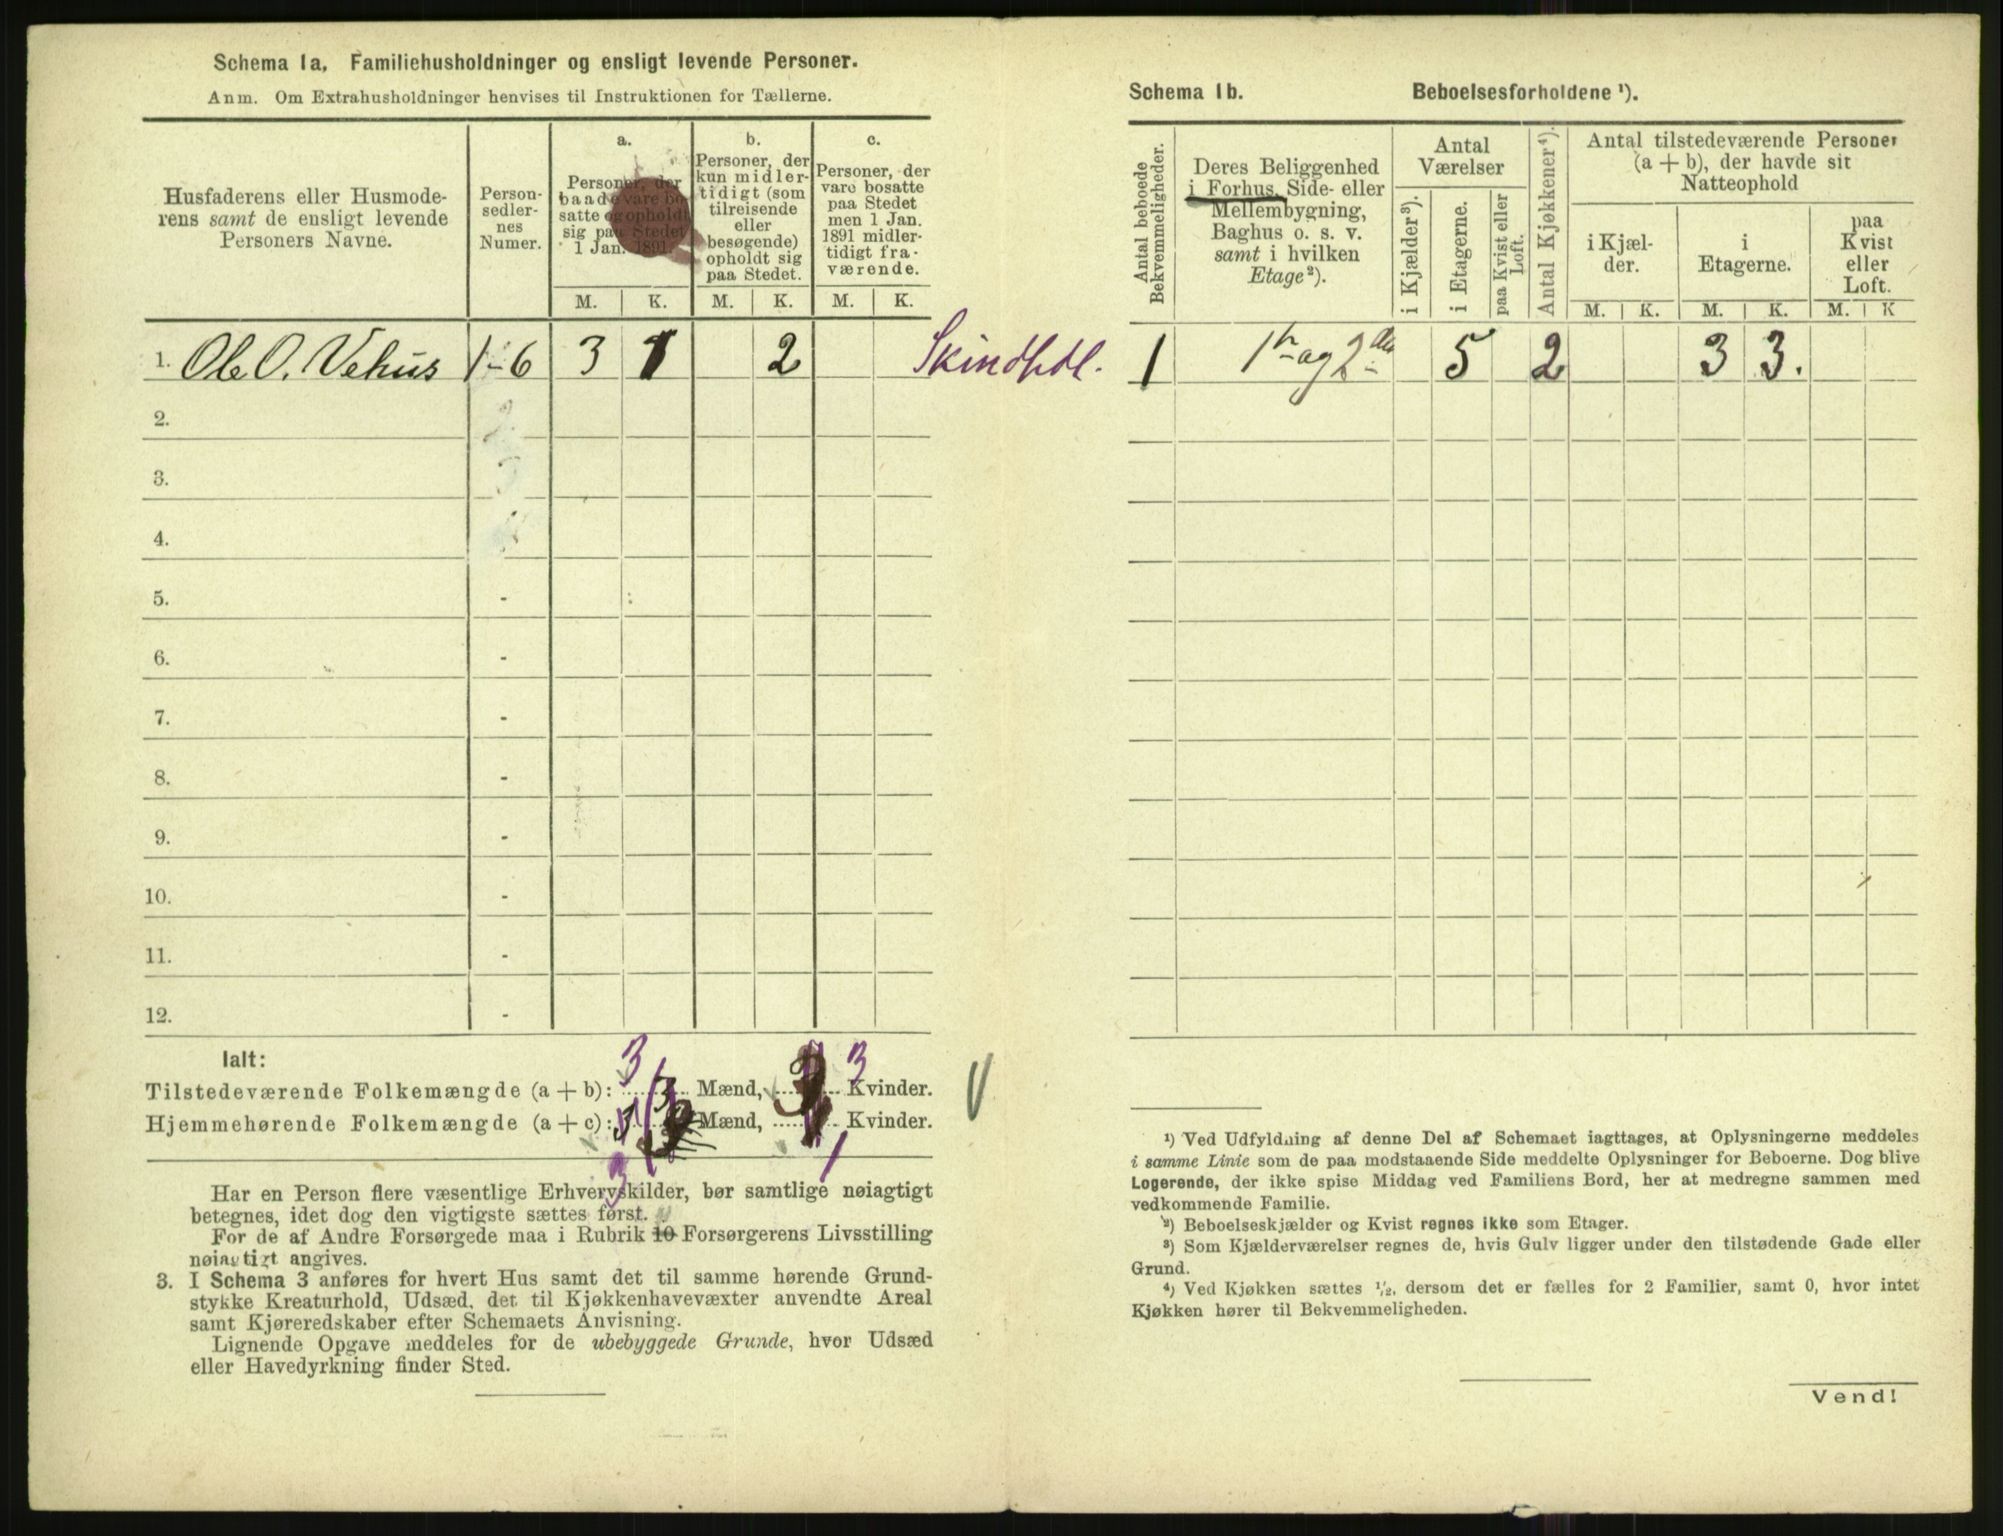 Schema 1a. Familiehusholdninger og ensligt levende Personer.
Anm. Om Extrahusholdninger henvises til Instruktionen for Tællerne.
Husfaderens eller Husmode-
rens samt de ensligt levende
Personers Navne.
Person-
sedler-
nes
Numer.
a.
Personer, der
baade vare bo-
satte og opholdt
sig paa Stedet
1 Jan. 1891
b.
Personer, der
kun midler-
tidigt (som
tilreisende
eller
besøgende)
opholdt sig
paa Stedet.
c.
Personer, der
vare bosatte
paa Stedet
men 1 Jan.
1891 midler-
tidigt fra-
værende.
M. K. M. K. M. K.
1. Ole O. Vehus 1-6 3 1 2
2.
3.
4.
5. -
6. -
7. -
8. -
9. -
10. -
11. -
12. -
Ialt:
Tilstedeværende Folkemængde (a + b): 3 Mænd, 3 Kvinder.
Hjemmehørende Folkemængde (a + c): 3 Mænd, 1 Kvinder.
Har en Person flere væsentlige Erhvervskilder, bør samtlige nøiagtigt
betegnes, idet dog den vigtigste sættes først.
For de af Andre Forsørgede maa i Rubrik 10 Forsørgerens Livsstilling
nøiagtigt angives.
3. I Schema 3 anføres for hvert Hus samt det til samme hørende Grund-
stykke Kreaturhold, Udsæd, det til Kjøkkenhavevæxter anvendte Areal
samt Kjøreredskaber efter Schemaets Anvisning.
Lignende Opgave meddeles for de ubebyggede Grunde, hvor Udsæd
eller Havedyrkning finder Sted.
Schema 1b. Beboelsesforholdene ¹).
Antal beboede
Bekvemmeligheder.
Deres Beliggenhed
i Forhus, Side- eller
Mellembygning,
Baghus o. s. v.
samt i hvilken
Etage²).
Antal
Værelser
i Kjælder³).
i Etagerne.
paa Kvist eller
Loft.
Antal Kjøkkener⁴).
Antal tilstedeværende Personer
(a + b), der havde sit
Natteophold
i Kjæl-
der.
i
Etagerne.
paa
Kvist
eller
Loft.
M. K. M. K. M. K
Skindhdl. 1 1ste og 2den 5 2 3 3.
¹) Ved Udfyldning af denne Del af Schemaet iagttages, at Oplysningerne meddeles
i samme Linie som de paa modstaaende Side meddelte Oplysninger for Beboerne. Dog blive
Logerende, der ikke spise Middag ved Familiens Bord, her at medregne sammen med
vedkommende Familie.
²) Beboelseskjælder og Kvist regnes ikke som Etager.
³) Som Kjælderværelser regnes de, hvis Gulv ligger under den tilstødende Gade eller
Grund.
⁴) Ved Kjøkken sættes ½, dersom det er fælles for 2 Familier, samt 0, hvor intet
Kjøkken hører til Bekvemmeligheden.
Vend!